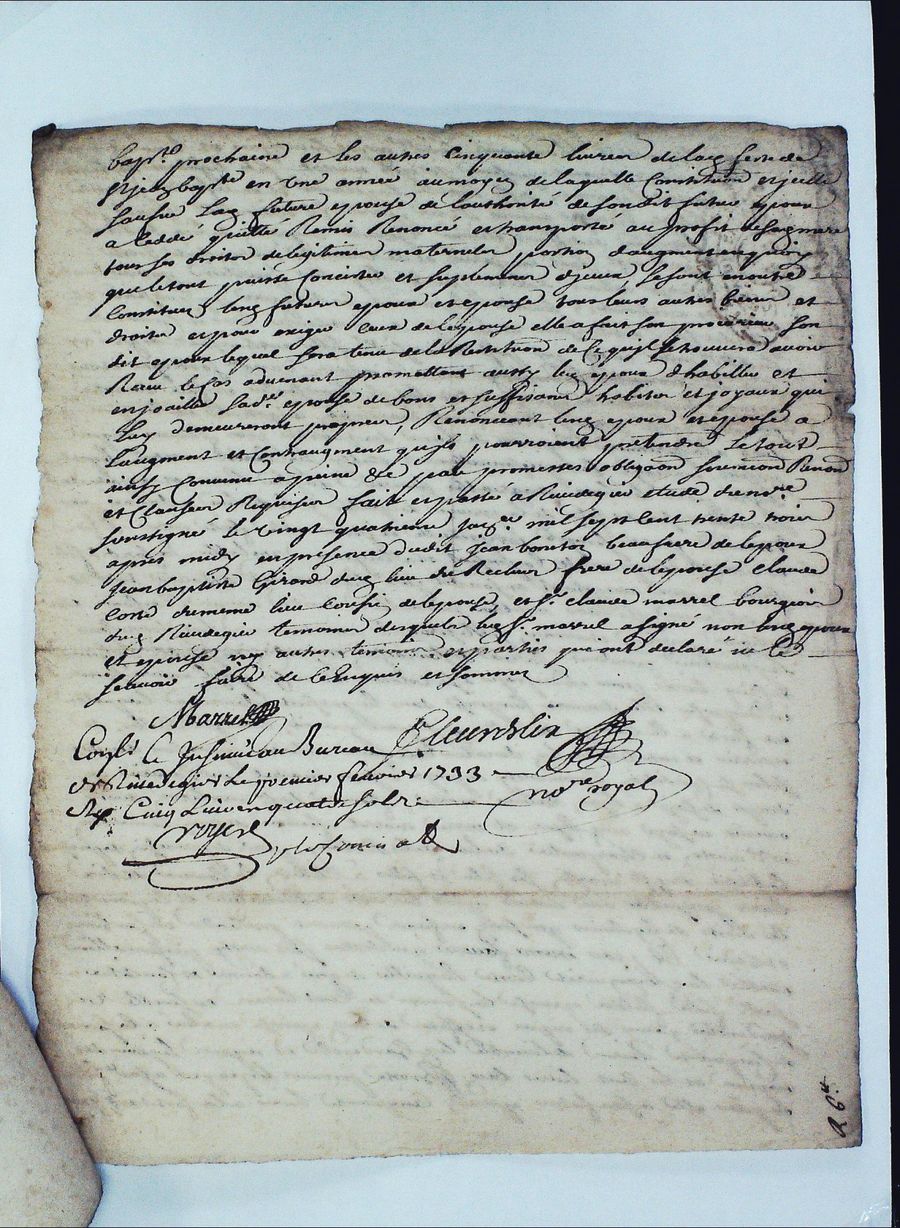 bap.te prochaine et les autres cinquante livres de la feste de
St jean bap.te en une année au moyen de laquelle constitution et icelle
sauve la future epouse de l'authorité de son dit futur epoux
a ceddé quitté Remis Renoncé et transporté au profit de sa mere
tous ses droits de legitime maternels portion d'augment en quoy
que le tout puisse concister et supplement d'yceux se sont en outre
constitués les futurs epoux et epouse tous leurs autres biens et
droits et pour exiger ceux de lepouse elle a fait son procureur son
dit epoux lequel sera tenu de la Restitution de ce quil se trouvera avoir
Receu le cas advenant promettant aussy led. epoux d'habiller et
enjoailler sad. epouse de bons et suffisans habits et joyaux qui
luy demeureront propres, Renonceant les epoux et epouse a
l'augment et contraugment quils pourroient prétendre Le tout
ainsy convenu a peine &c par promesses obligaon soumion Renon
et Clauses Requises fait et passé a Rivedegier etude du no.re
soussigné le vingt quatrieme jan.er mil sept cent trente trois
apres midy en présence dudit jean beau frere de lepoux
jean baptiste Girard du lieu de frere de lepouse claude
du meme lieu cousin de lepouse, et S.r claude marrel bourgeois
dud Rivedegier temoins desquels led S.r marrel a signé non les epoux
et epouse ny autres temoins et parties qui ont declaré ne le
scavoir faire de ce enquis et sommés
Marrel
Con.lé & Insinué au Bureau
de Rivedegier Le premier fevrier 1733
Rx Cinq Livres quatre sols
no.re royal
royer